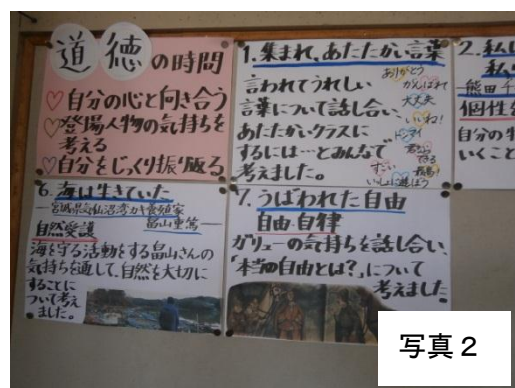 道徳の時間
♡自分の心と向き合う
♡登場人物の気持ちを
考える
♡自分をじっくり振り返る
1.集まれ、あたたかい言葉
言われてうれしい
言葉について話し合い、
あたたかいクラスに
するには…とみんなで
考えました。
ありがとう
がんばれ
大丈夫
いいね!
ドンマイ
君なら
できる
すごい
いっしょに遊ぼう
2.私し
熊田千
個性を
自分の
いくこと
6.海は生きていた
宮城県気仙沼湾カキ養殖家
畠山重篤
自然愛護
海を守る活動をする畠山さんの
気持ちを通して、自然を大切に
することに
ついて考え
ました。
7.うばわれた自由
自由・自律
ガリューの気持ちを話し合い、
「本当の自由とは?」について
考えました。
写真2